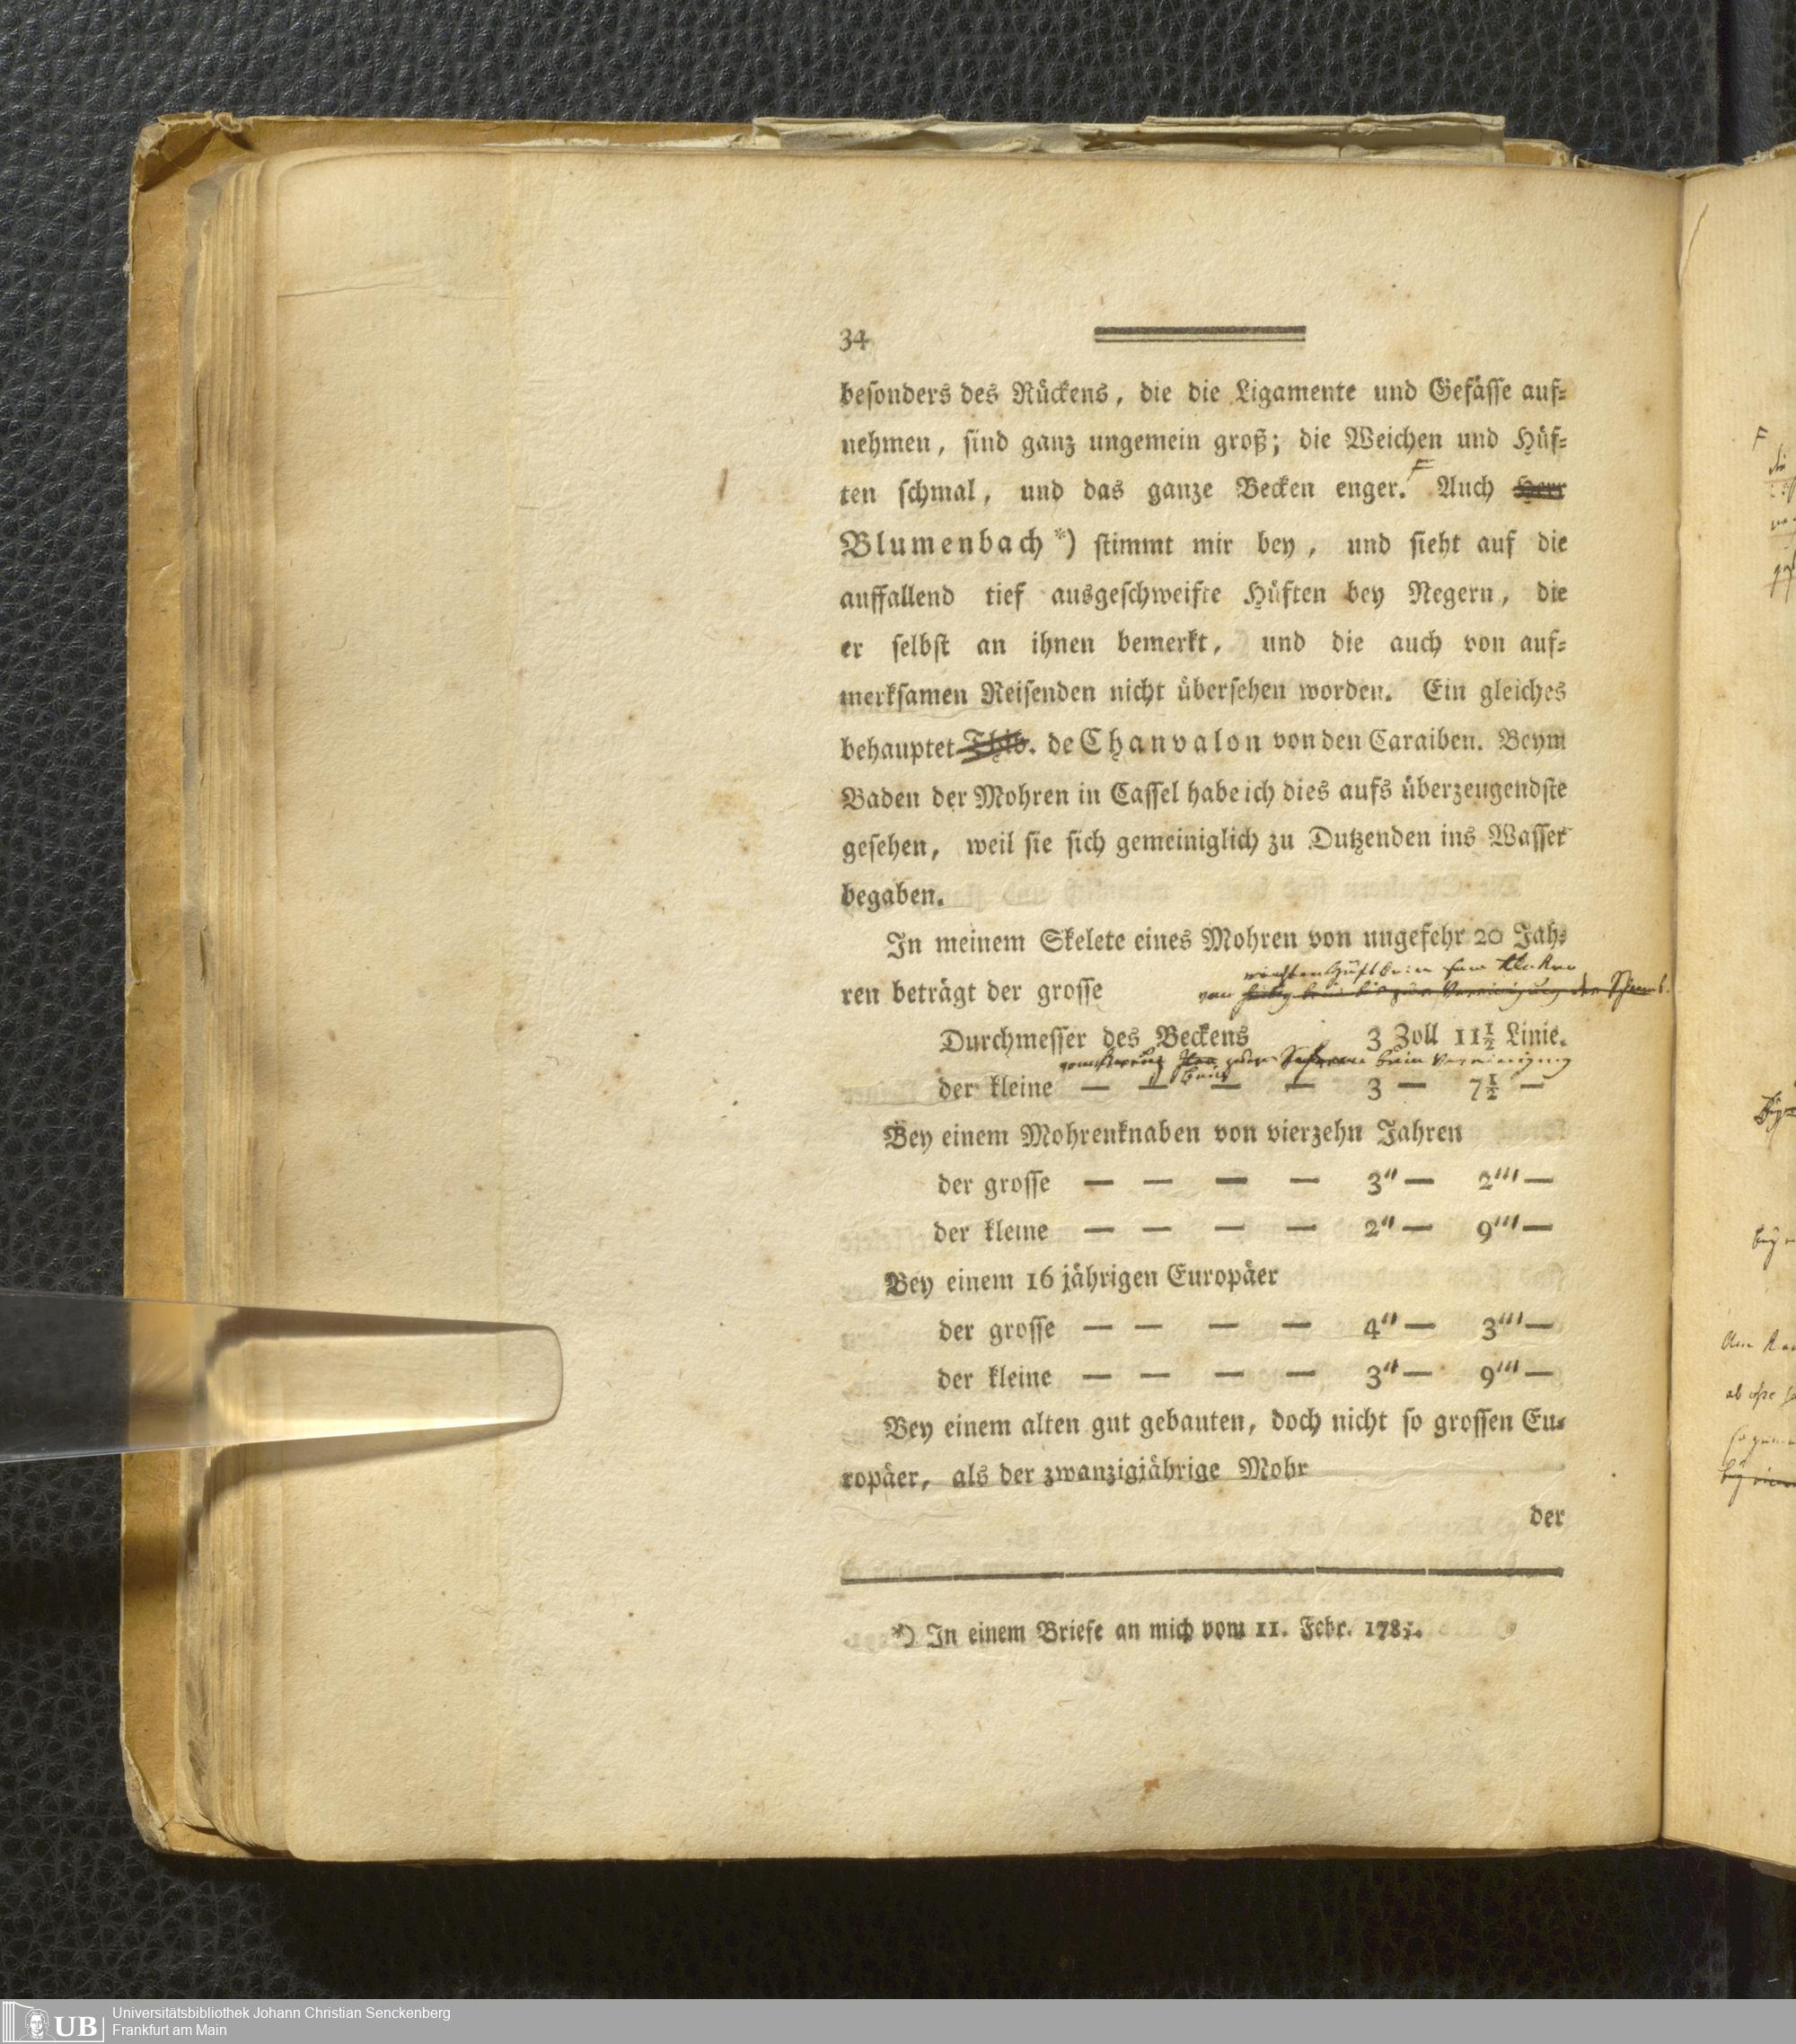 34
besonders des Rückens, die die Ligamente und Gefässe auf-
nehmen, sind ganz ungemein groß; die Weichen und Hüf-
ten schmal, und das ganze Becken enger. F Auch Herr
Blumenbach *) stimmt mir bey, und sieht auf die
auffallend tief ausgeschweifte Hüften bey Negern, die
er selbst an ihnen bemerkt, und die auch von auf-
merksamen Reisenden nicht übersehen worden. Ein gleiches
behauptet Thib. de Chanvalon von den Caraiben. Beym
Baden der Mohren in Cassel habe ich dies aufs überzeugendste
gesehen, weil sie sich gemeiniglich zu Dutzenden ins Wasser
begaben.
In meinem Skelete eines Mohren von ungefehr 20 Jah-
ren beträgt der grosse von
Durchmesser des Beckens 3 Zoll 11½ Linie.
der kleine — — — — 3 — 7½ —
Bey einem Mohrenknaben von vierzehn Jahren
der grosse — — — — 3" — 2"' —
der kleine — — — — 2" — 9"' —
Bey einem 16 jährigen Europäer
der grosse — — — — 4" — 3"' —
der kleine — — — — 3" — 9"' —
Bey einem alten gut gebauten, doch nicht so grossen Eu-
ropäer, als der zwanzigjährige Mohr
der
*) In einem Briefe an mich vom 11. Febr. 178
F
UB Universitätsbibliothek Johann Christian Senckenberg
Frankfurt am Main